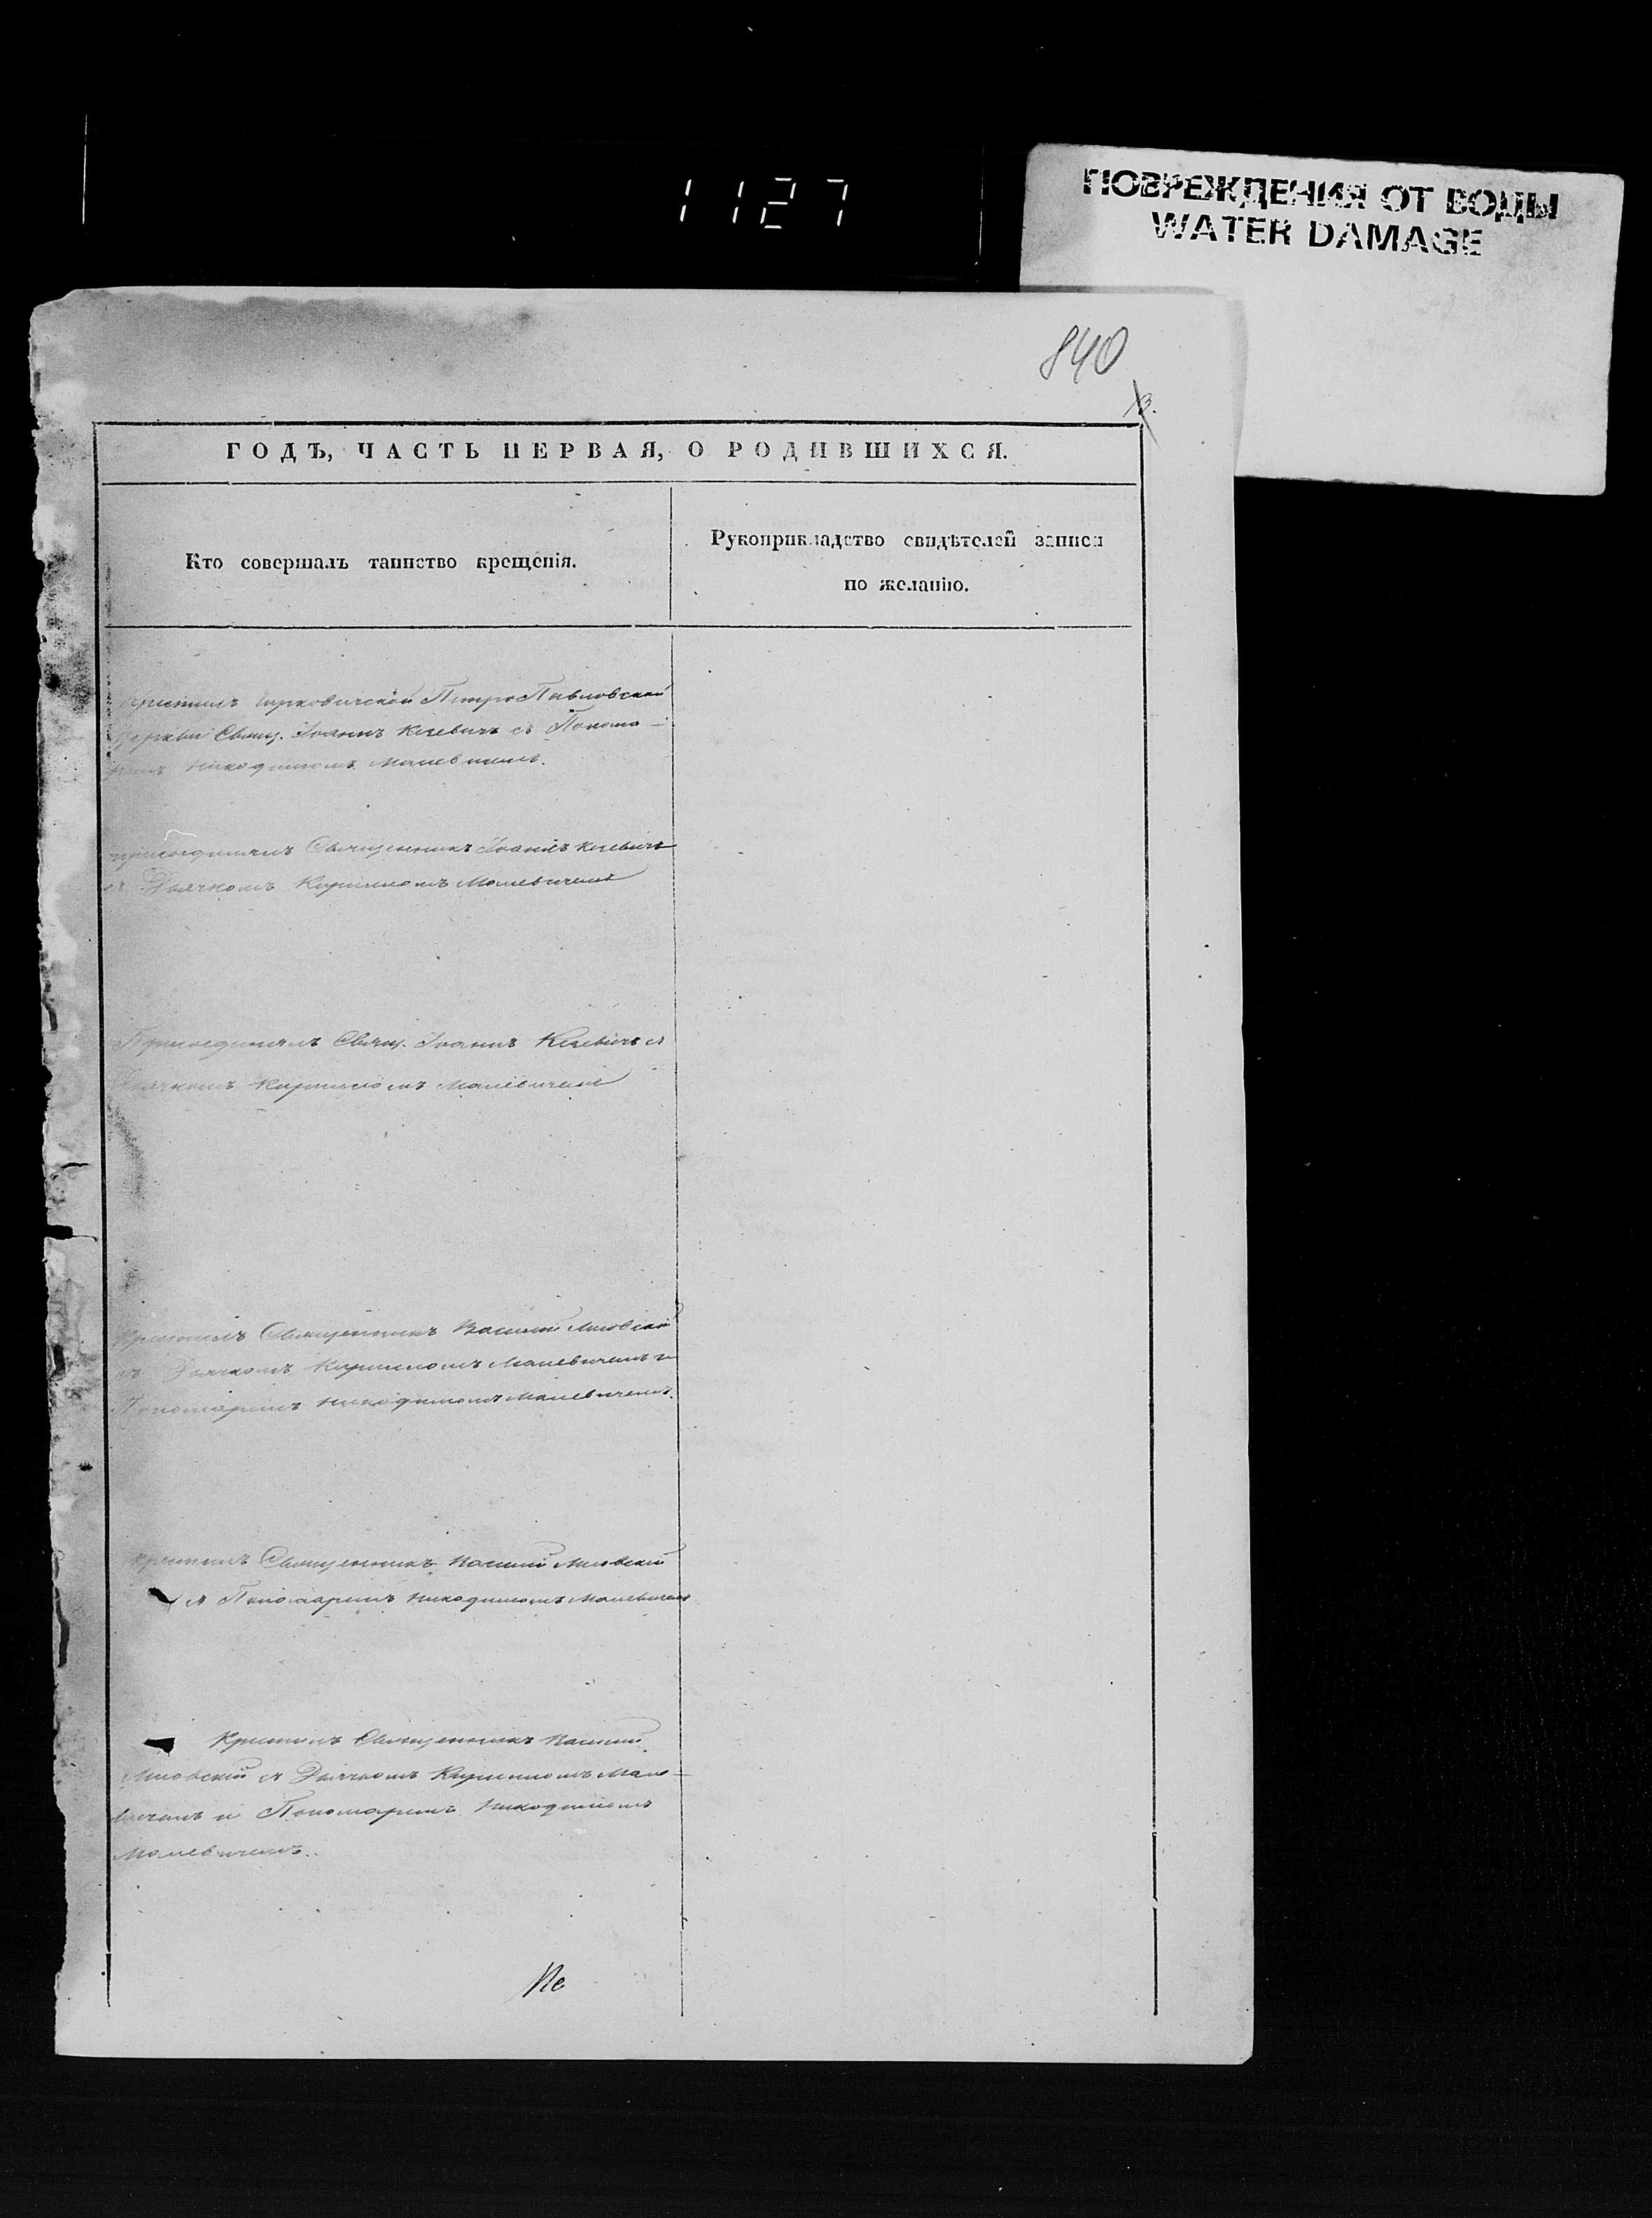 1127
ПОВРЕЖДЕНИЯ ОТ ВОДЫ
WATER DAMAGE
840
13.
ГОДЪ, ЧАСТЬ ПЕРВАЯ, О РОДИВШИХСЯ.
Кто совершалъ таинство крещенія.
Рукоприкладство свидѣтелей записи
по желанію.
Крестилъ Петро Павловской
Церкви Свящ. Іоаннъ с Понома-
ремъ Никодимомъ Малевичемъ.
присоединялъ Священникъ Іоаннъ
с Дьячкомъ Кирилломъ Малевичемъ
Присоединялъ Свящ. Іоаннъ с
Дьячкомъ Кирилломъ Малевичемъ
Крестилъ Священникъ Василій Лисовскій
съ Дьячкомъ Кирилломъ Малевичемъ и
Пономаремъ Никодимомъ Малевичемъ.
Крестилъ Священникъ Василій Лисовскій
с Пономаремъ Никодимомъ Малевичемъ
Крестилъ Священникъ Василій
Лисовскій с Дьячкомъ Кирилломъ Мале-
вичемъ и Пономаремъ Никодимомъ
Малевичемъ.